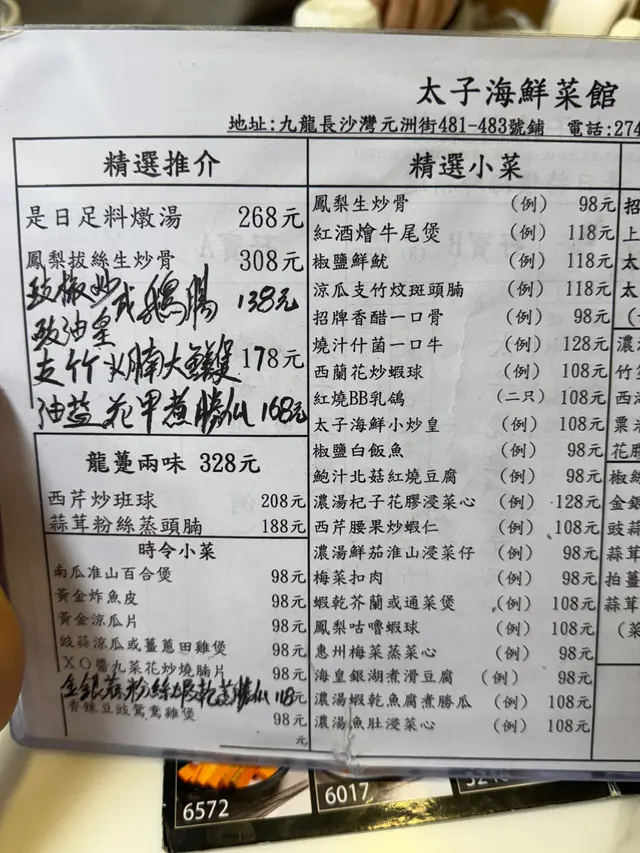 太子海鮮菜館
地址:九龍長沙灣元洲街481-483號鋪 電話:274
精選推介
是日足料燉湯 268元
鳳梨拔絲生炒骨 308元
豉椒炒 鵝腸 138元
豉油皇
支竹火腩大鱔煲 178元
花甲煮勝瓜 168元
龍躉兩味 328元
西芹炒班球 208元
蒜茸粉絲蒸頭腩 188元
時令小菜
南瓜准山百合煲 98元
黃金炸魚皮 98元
黃金涼瓜片 98元
豉蒜涼瓜或薑蔥田雞煲 98元
XO醬丸菜花炒燒腩片 98元
金銀蒜粉絲蝦乾蒸勝瓜 118元
香辣豆豉鴛鴦雞煲 98元
元
精選小菜
鳳梨生炒骨 (例) 98元
紅酒燴牛尾煲 (例) 118元
椒鹽鮮魷 (例) 118元
涼瓜支竹炆斑頭腩 (例) 118元
招牌香醋一口骨 (例) 98元
燒汁什菌一口牛 (例) 128元
西蘭花炒蝦球 (例) 108元
紅燒BB乳鴿 (二只) 108元
太子海鮮小炒皇 (例) 108元
椒鹽白飯魚 (例) 98元
鮑汁北菇紅燒豆腐 (例) 98元
濃湯杞子花膠浸菜心 (例) 128元
西芹腰果炒蝦仁 (例) 108元
濃湯鮮茄淮山浸菜仔 (例) 98元
梅菜扣肉 (例) 98元
蝦乾芥蘭或通菜煲 (例) 108元
鳳梨咕嚕蝦球 (例) 108元
惠州梅菜蒸菜心 (例) 98元
海皇銀湖煮滑豆腐 (例) 98元
濃湯蝦乾魚腐煮勝瓜 (例) 108元
濃湯魚肚浸菜心 (例) 108元
招
上
太
太
濃
竹
西
粟
花
椒
金銀
豉
蒜茸
拍薑
蒜茸
(菜
6572
6017